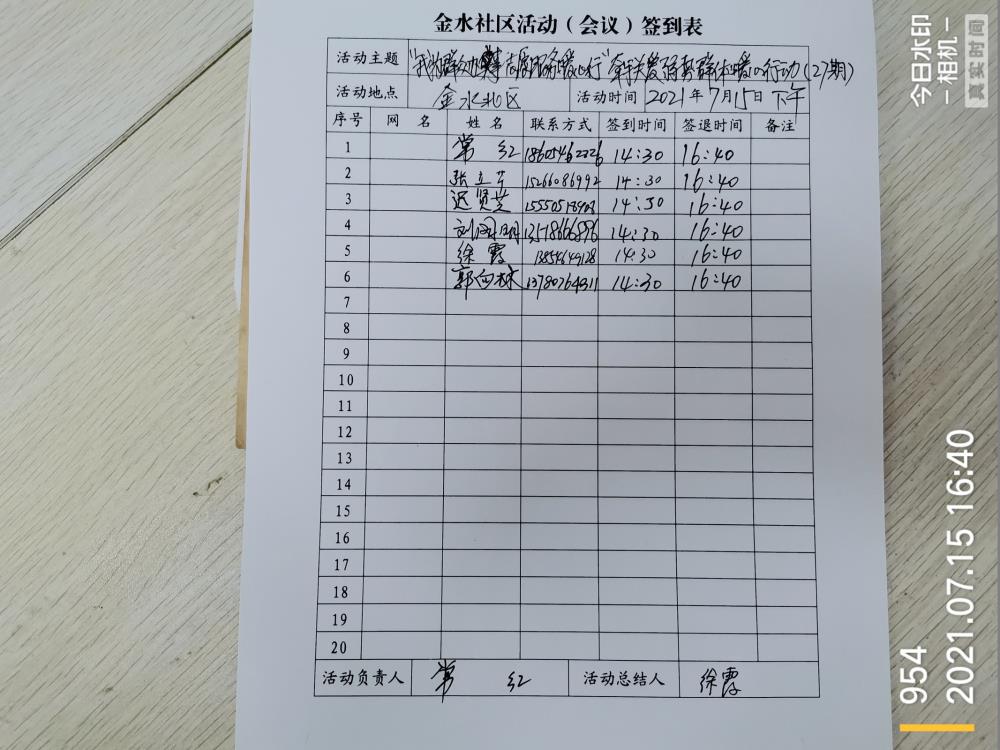 金水社区活动（会议）签到表
活动主题 "我为群众办实事 志愿服务暖心行" 牵手关爱弱势群体暖心行动(27期)
活动地点 金水北区 活动时间 2021年7月15日 下午
序号 网 名 姓 名 联系方式 签到时间 签退时间 备注
1 常 红 18605462226 14:30 16:40
2 张立芹 15266086992 14:30 16:40
3 迟贤芝 14:30 16:40
4 14:30 16:40
5 徐霞 13854649128 14:30 16:40
6 郭向林 13780764311 14:30 16:40
7
8
9
10
11
12
13
14
15
16
17
18
19
20
活动负责人 常 红 活动总结人 徐霞
今日水印
-相机-
真实时间
954
2021.07.15 16:40